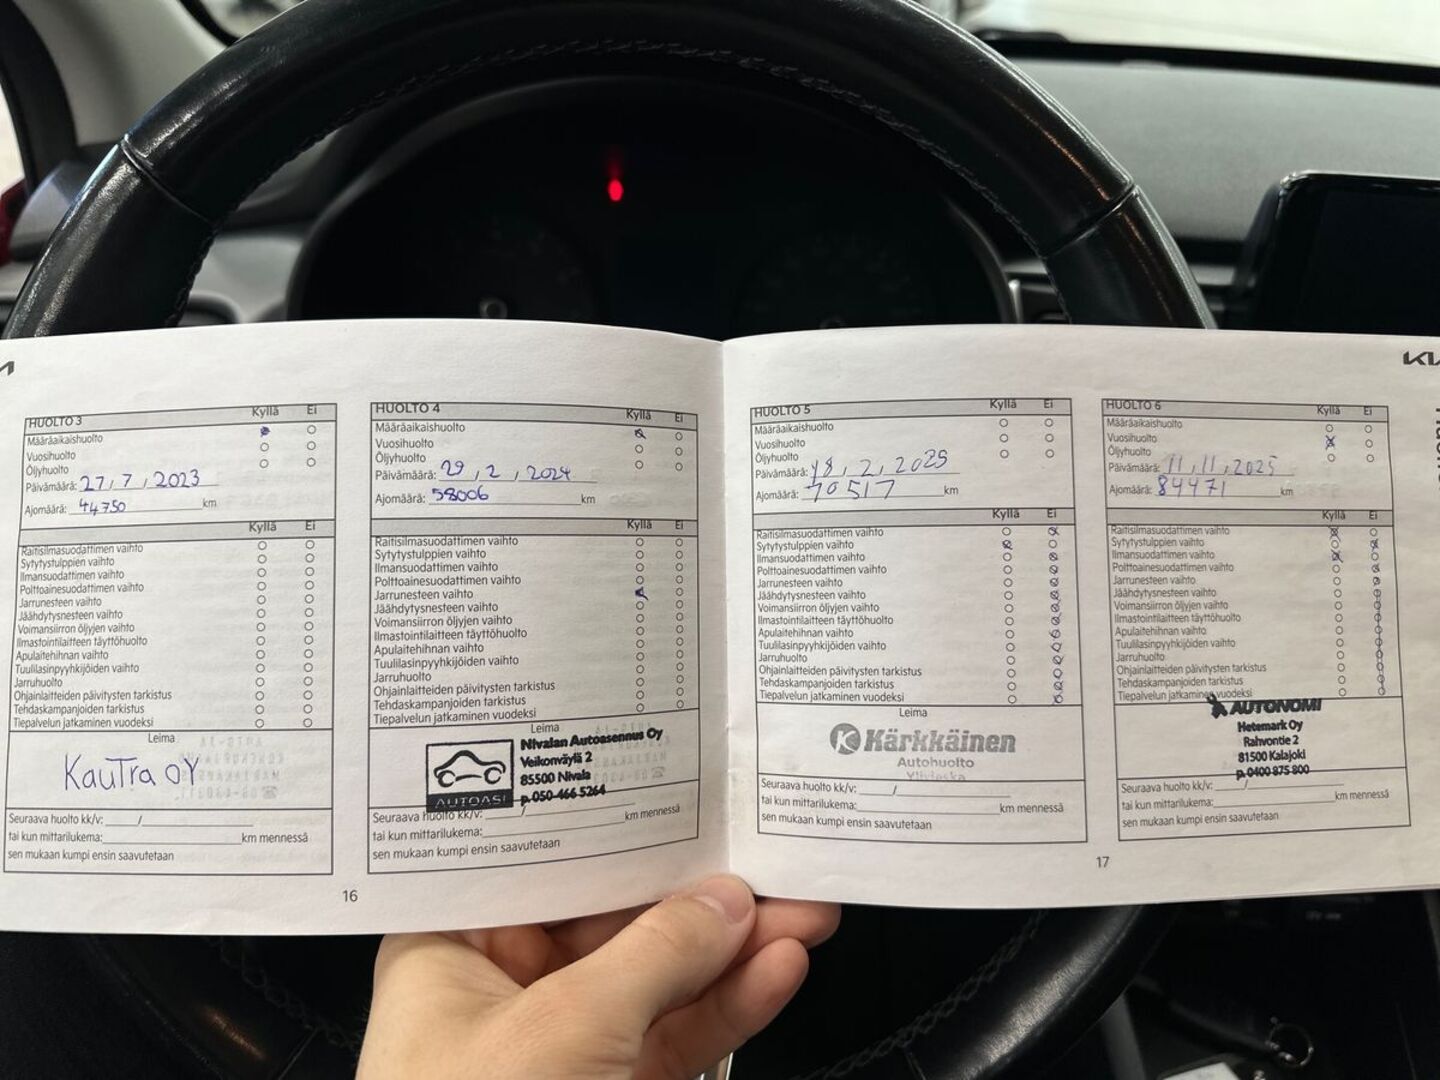 HUOLTO 3
Kyllä Ei
Määräaikaishuolto
Vuosihuolto
Öljyhuolto
Päivämäärä: 27, 7, 2023
Ajomäärä: 44750 km
Kyllä Ei
Raitisilmasuodattimen vaihto
Sytytystulppien vaihto
Ilmansuodattimen vaihto
Polttoainesuodattimen vaihto
Jarrunesteen vaihto
Jäähdytysnesteen vaihto
Voimansiirron öljyjen vaihto
Ilmastointilaitteen täyttöhuolto
Apulaitehihnan vaihto
Tuulilasinpyyhkijöiden vaihto
Jarruhuolto
Ohjainlaitteiden päivitysten tarkistus
Tehdaskampanjoiden tarkistus
Tiepalvelun jatkaminen vuodeksi
Leima
KauTra OY
Seuraava huolto kk/v: /
tai kun mittarilukema: km mennessä
sen mukaan kumpi ensin saavutetaan
16
HUOLTO 4
Kyllä Ei
Määräaikaishuolto
Vuosihuolto
Öljyhuolto
Päivämäärä: 29, 2, 2024
Ajomäärä: 58006 km
Kyllä Ei
Raitisilmasuodattimen vaihto
Sytytystulppien vaihto
Ilmansuodattimen vaihto
Polttoainesuodattimen vaihto
Jarrunesteen vaihto
Jäähdytysnesteen vaihto
Voimansiirron öljyjen vaihto
Ilmastointilaitteen täyttöhuolto
Apulaitehihnan vaihto
Tuulilasinpyyhkijöiden vaihto
Jarruhuolto
Ohjainlaitteiden päivitysten tarkistus
Tehdaskampanjoiden tarkistus
Tiepalvelun jatkaminen vuodeksi
Leima
AUTOASI
Nivalan Autoasennus Oy
Veikonväylä 2
85500 Nivala
p.050-466 5264
Seuraava huolto kk/v: /
tai kun mittarilukema: km mennessä
sen mukaan kumpi ensin saavutetaan
KIA
HUOLTO 5
Kyllä Ei
Määräaikaishuolto
Vuosihuolto
Öljyhuolto
Päivämäärä: 18, 2, 2025
Ajomäärä: 70517 km
Kyllä Ei
Raitisilmasuodattimen vaihto
Sytytystulppien vaihto
Ilmansuodattimen vaihto
Polttoainesuodattimen vaihto
Jarrunesteen vaihto
Jäähdytysnesteen vaihto
Voimansiirron öljyjen vaihto
Ilmastointilaitteen täyttöhuolto
Apulaitehihnan vaihto
Tuulilasinpyyhkijöiden vaihto
Jarruhuolto
Ohjainlaitteiden päivitysten tarkistus
Tehdaskampanjoiden tarkistus
Tiepalvelun jatkaminen vuodeksi
Leima
K Kärkkäinen
Autohuolto
Ylivieska
Seuraava huolto kk/v: /
tai kun mittarilukema: km mennessä
sen mukaan kumpi ensin saavutetaan
17
HUOLTO 6
Kyllä Ei
Määräaikaishuolto
Vuosihuolto
Öljyhuolto
Päivämäärä: 11, 11, 2025
Ajomäärä: 84471 km
Kyllä Ei
Raitisilmasuodattimen vaihto
Sytytystulppien vaihto
Ilmansuodattimen vaihto
Polttoainesuodattimen vaihto
Jarrunesteen vaihto
Jäähdytysnesteen vaihto
Voimansiirron öljyjen vaihto
Ilmastointilaitteen täyttöhuolto
Apulaitehihnan vaihto
Tuulilasinpyyhkijöiden vaihto
Jarruhuolto
Ohjainlaitteiden päivitysten tarkistus
Tehdaskampanjoiden tarkistus
Tiepalvelun jatkaminen vuodeksi
AUTONOMI
Hetemark Oy
Rahvontie 2
81500 Kalajoki
p. 0400 875 800
Seuraava huolto kk/v: /
tai kun mittarilukema: km mennessä
sen mukaan kumpi ensin saavutetaan